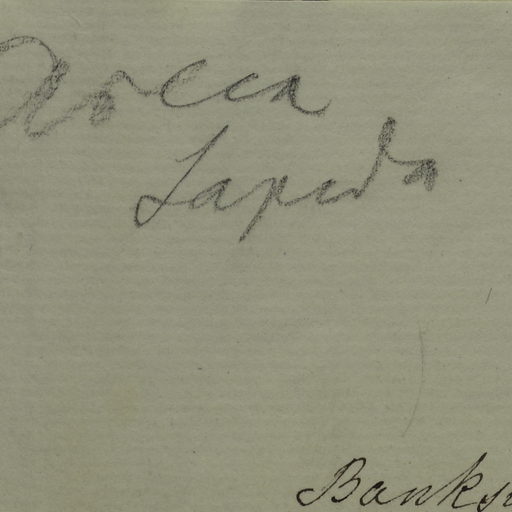 Rocca
Lapida
Banks